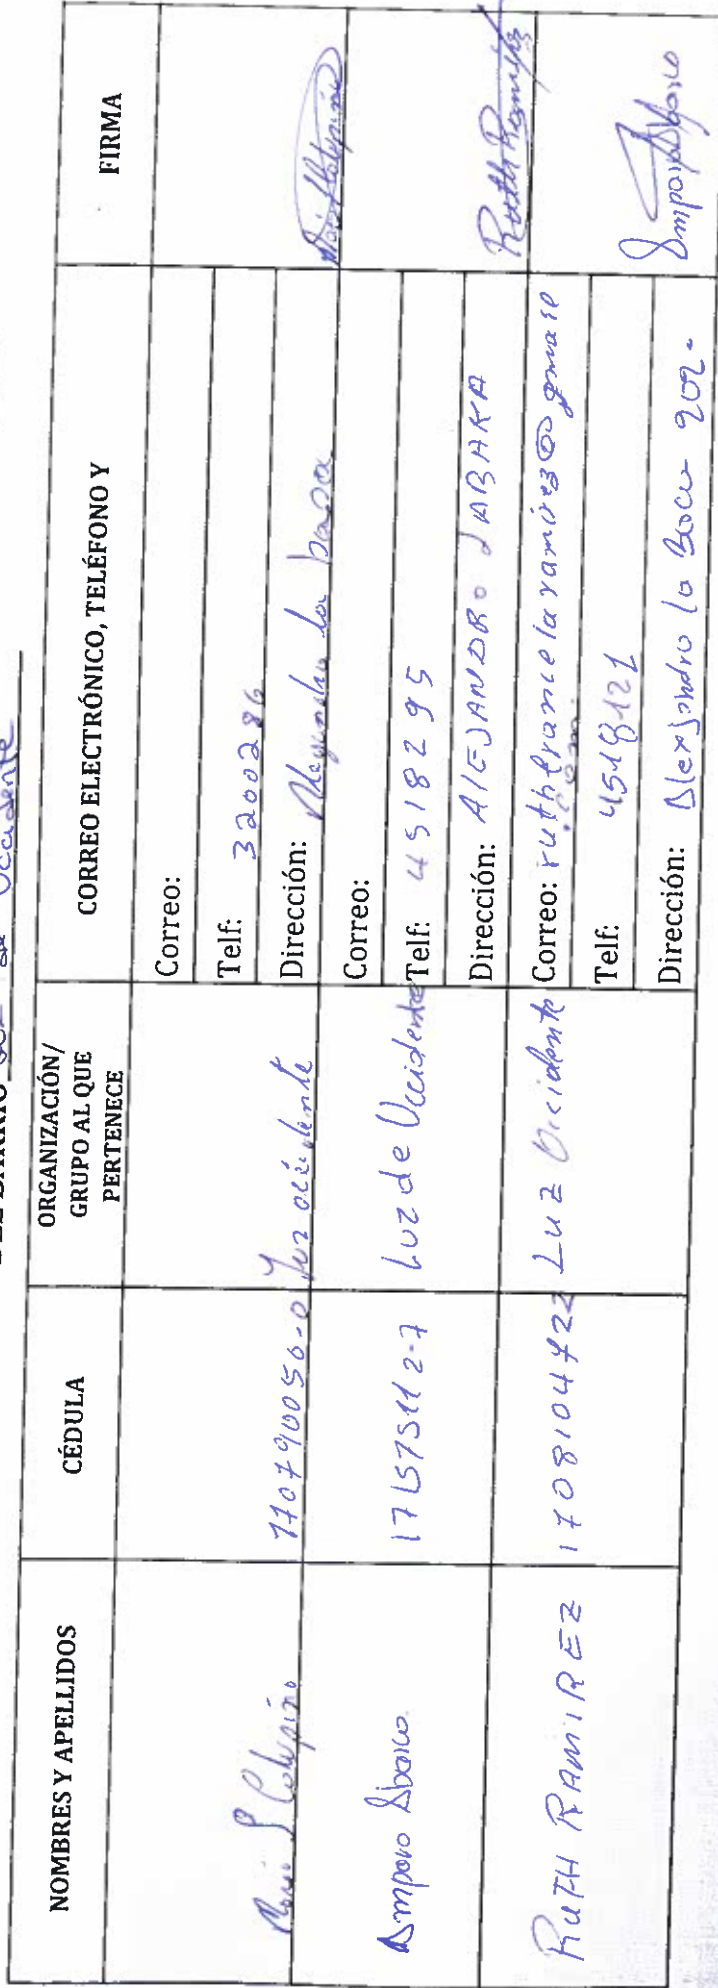 DEL BARRIO Luz de Occidente
NOMBRES Y APELLIDOS
CÉDULA
ORGANIZACIÓN/
GRUPO AL QUE
PERTENECE
CORREO ELECTRÓNICO, TELÉFONO Y
FIRMA
170790050-0
Luz occidente
Correo:
Telf: 3200286
Dirección:
Amparo
171575112-7
Luz de Occidente
Correo:
Telf: 4518295
Dirección: AlEJANDRO LABAKA
Ruth Ramirez
RUTH RAMIREZ
1708104722
Luz Occidente
Correo: ruthfrancelaramirez@gmail
.com
Telf: 4518121
Dirección:
Amparo